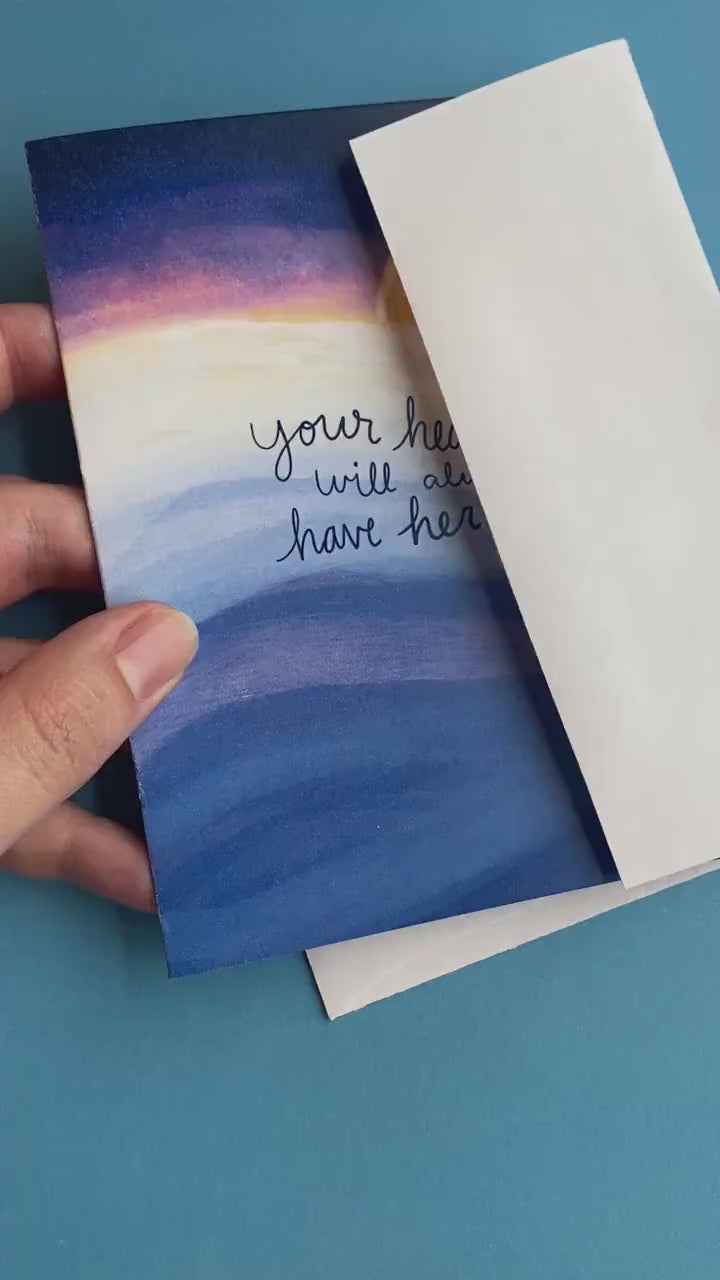 your hea
will alw
have her